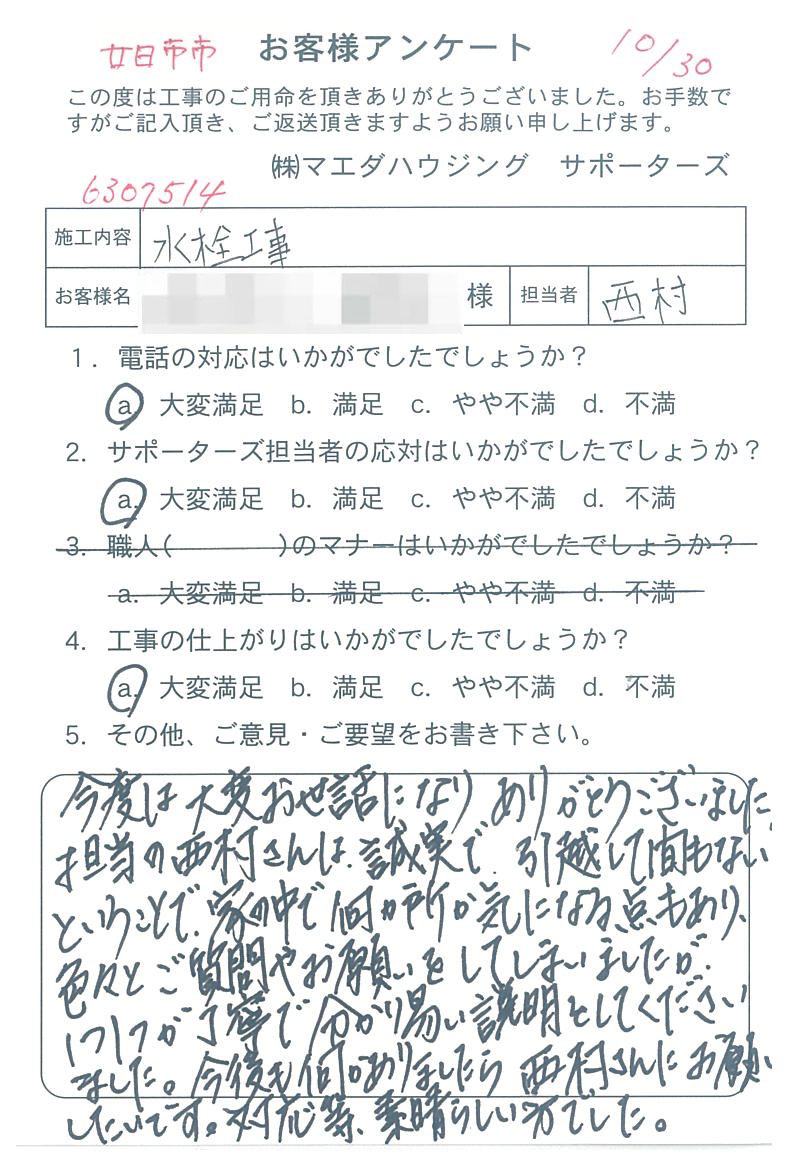 廿日市市 お客様アンケート 10/30
この度は工事のご用命を頂きありがとうございました。お手数で
すがご記入頂き、ご返送頂きますようお願い申し上げます。
㈱マエダハウジング サポーターズ
6307514
施工内容 水栓工事
お客様名 様 担当者 西村
1. 電話の対応はいかがでしたでしょうか？
a. 大変満足 b. 満足 c. やや不満 d. 不満
2. サポーターズ担当者の応対はいかがでしたでしょうか？
a. 大変満足 b. 満足 c. やや不満 d. 不満
3. 職人( )のマナーはいかがでしたでしょうか？
a. 大変満足 b. 満足 c. やや不満 d. 不満
4. 工事の仕上がりはいかがでしたでしょうか？
a. 大変満足 b. 満足 c. やや不満 d. 不満
5. その他、ご意見・ご要望をお書き下さい。
今度は大変お世話になりありがとうございました
担当の西村さんは、誠実で、引越して間もない
ということで、家の中で何か所か気になる点もあり、
色々とご質問やお願いをしてしまいましたが、
1つ1つが丁寧で分かり易い説明をしてください
ました。今後も何かありましたら西村さんにお願い
したいです。対応等、素晴らしい方でした。